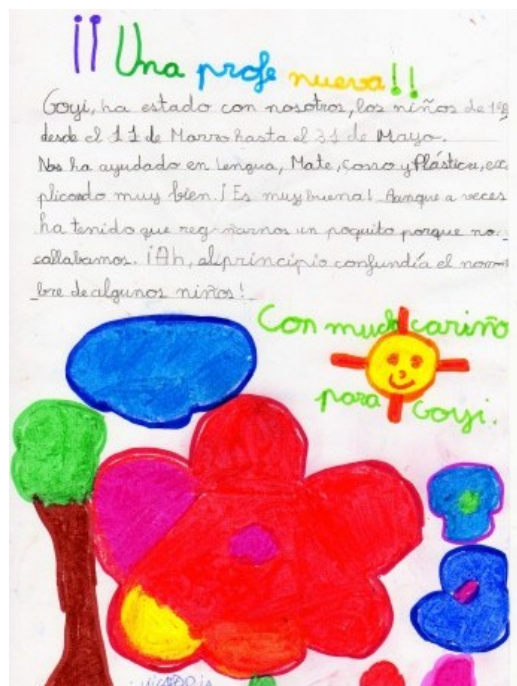 ¡¡Una profe nueva!!
Goyi, ha estado con nosotros, los niños de 1ºB
desde el 11 de Marzo hasta el 31 de Mayo.
Nos ha ayudado en Lengua, Mate, cono y Plástica, ex
plicando muy bien. ¡Es muy buena! Aunque a veces
ha tenido que regañarnos un poquito porque no
callabamos. ¡Ah, al principio confundía el nom-
bre de algunos niños!
Con mucho cariño
para Goyi.